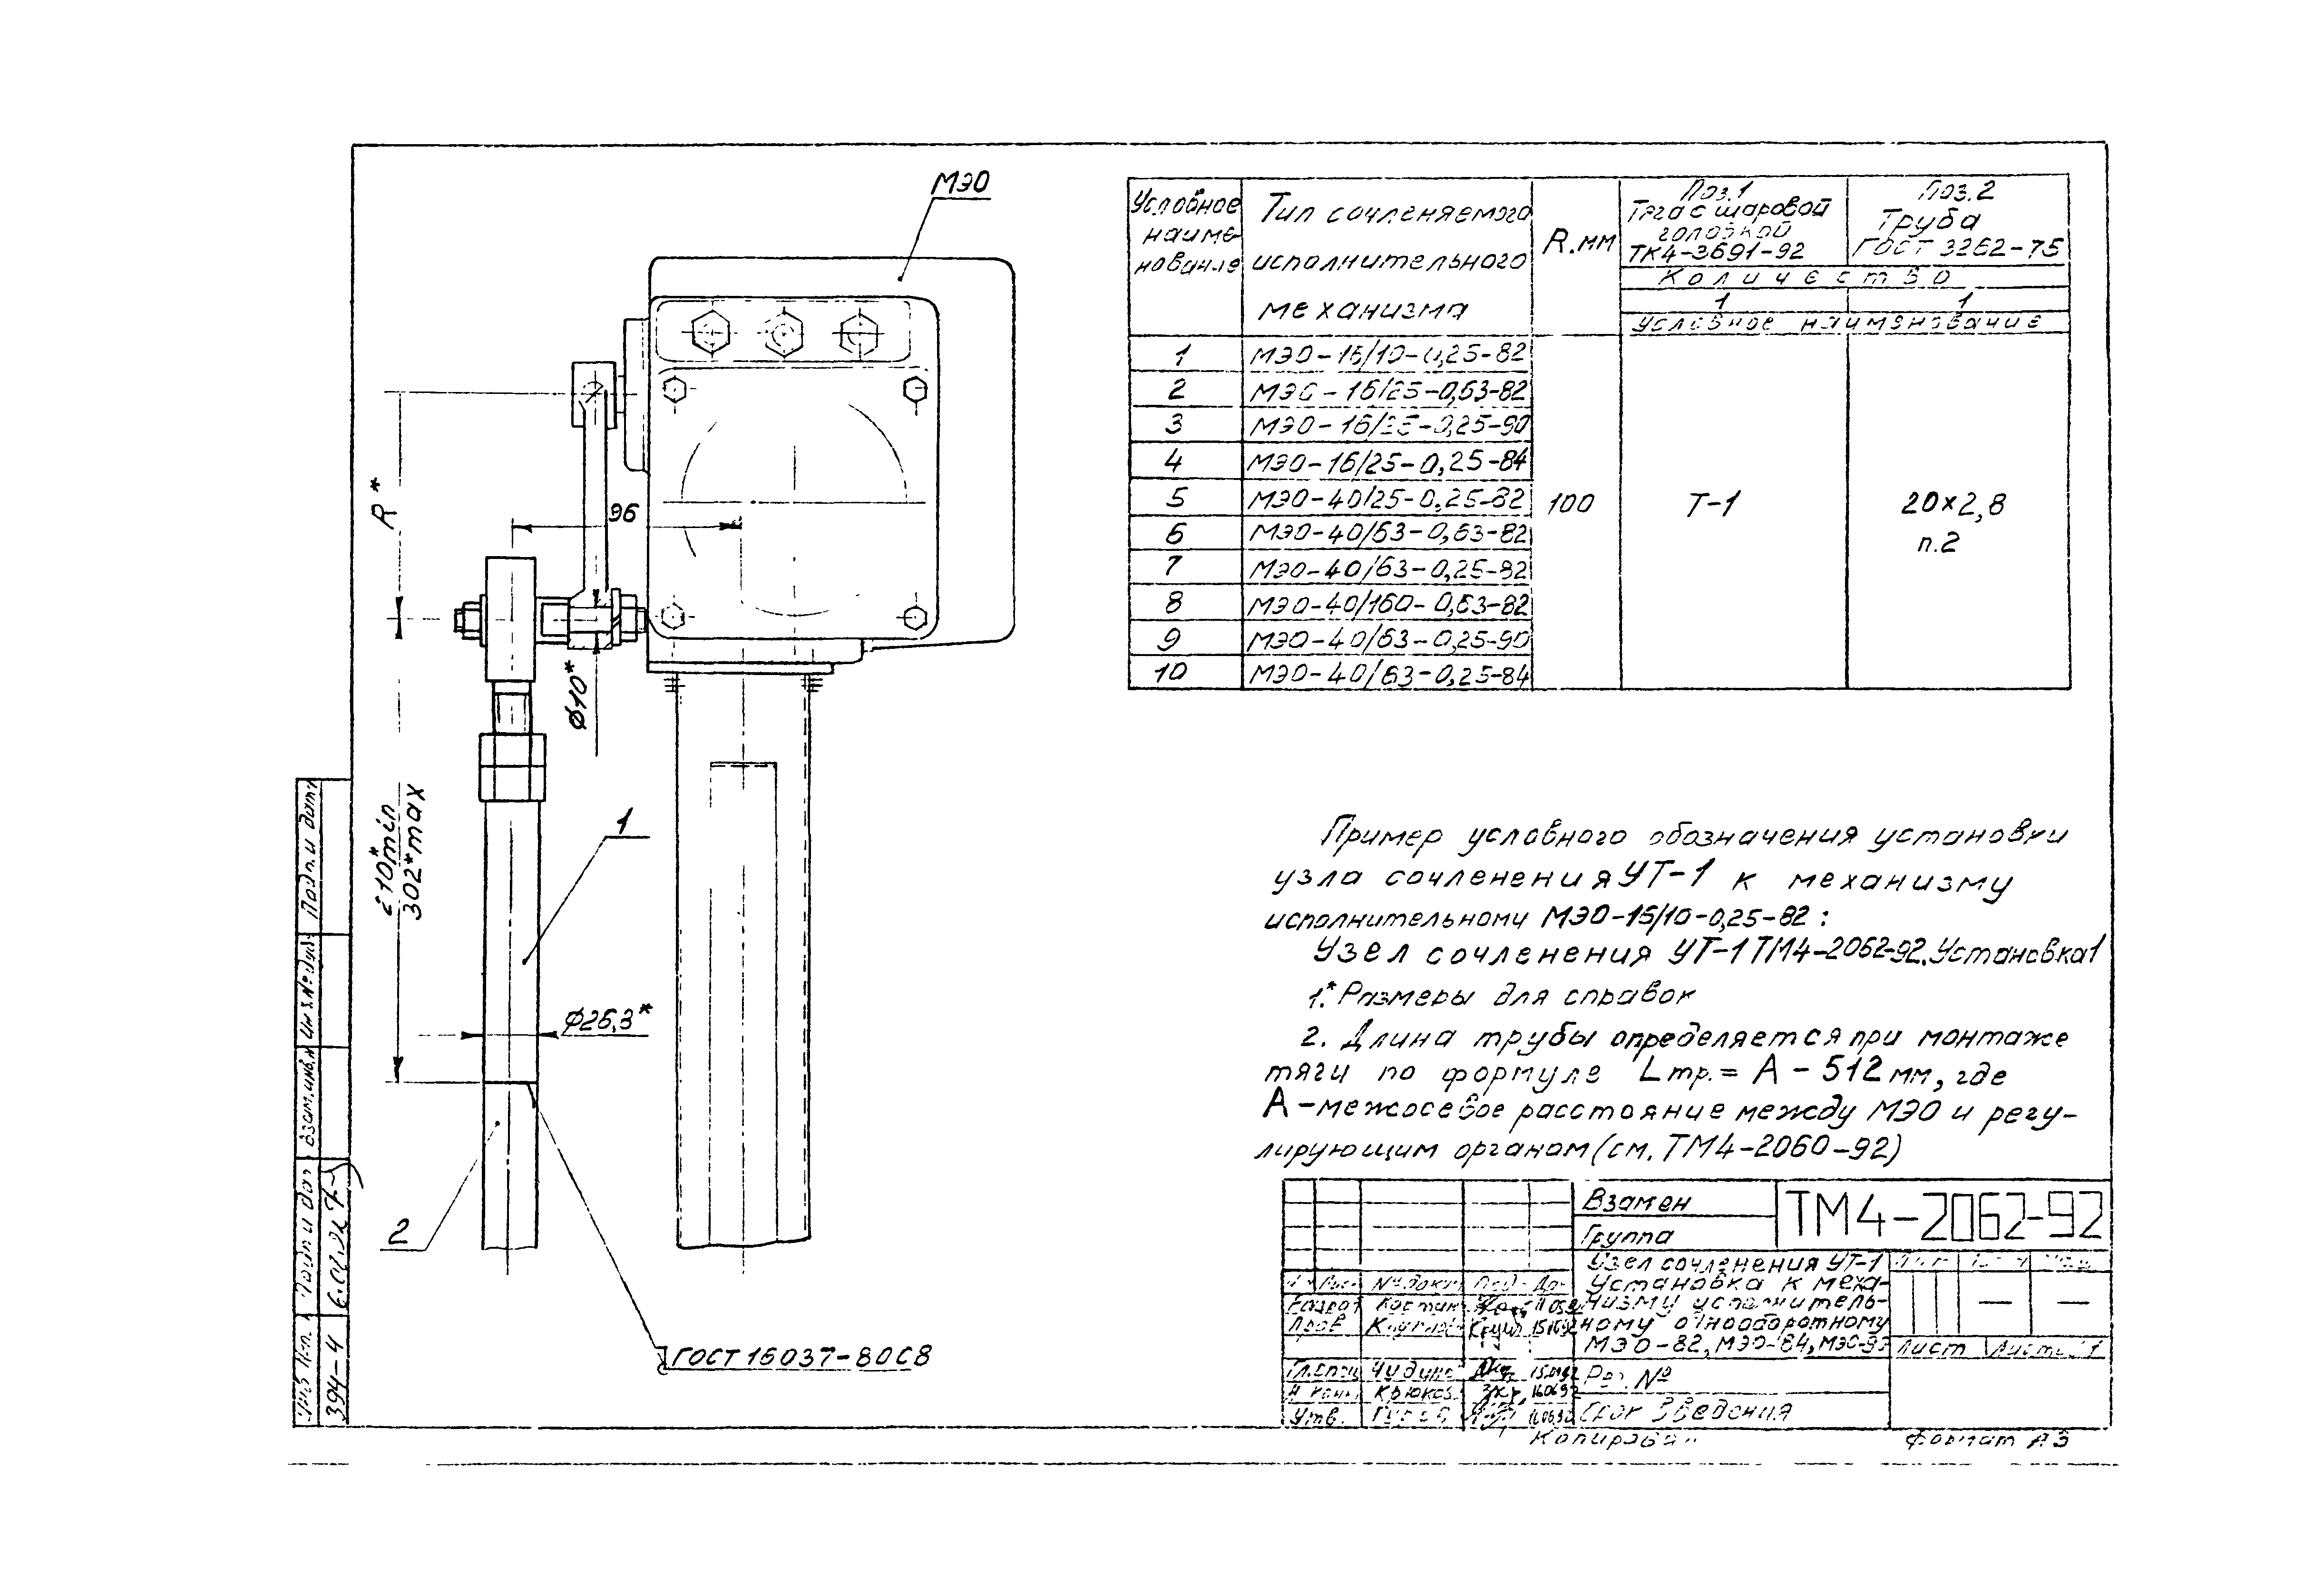 МЭО
R*
96
Ø10*
210*min
302*max
1
Ø26,3*
2
ГОСТ 16037-80С8
Условное наименование
Тип сочленяемого исполнительного механизма
R.мм
Поз.1
Тяга с шаровой
головкой
ТК4-3691-92
Поз.2
Труба
ГОСТ 3262-75
Количество
1 1
Условное наименование
1 МЭО-16/10-0,25-82
2 МЭО-16/25-0,63-82
3 МЭО-16/25-0,25-90
4 МЭО-16/25-0,25-84
5 МЭО-40/25-0,25-82
6 МЭО-40/63-0,63-82
7 МЭО-40/63-0,25-82
8 МЭО-40/160-0,63-82
9 МЭО-40/63-0,25-90
10 МЭО-40/63-0,25-84
100 Т-1 20×2,8
п.2
Пример условного обозначения установки
узла сочленения УТ-1 к механизму
исполнительному МЭО-16/10-0,25-82:
Узел сочленения УТ-1 ТМ4-2062-92.Установка1
1.* Размеры для справок
2. Длина трубы определяется при монтаже
тяги по формуле Lтр.= А - 512 мм, где
А-межосевое расстояние между МЭО и регу-
лирующим органом (см. ТМ4-2060-92)
Взамен
ТМ4-2062-92
Группа
Узел сочленения УТ-1
Установка к меха-
низму исполнитель-
ному однооборотному
МЭО-82, МЭО-84, МЭО-93
Лист Листов 1
Разраб
Пров
Гл.спец
Н.конт
Утв.
Рег. №
Срок введения
Копировал
Формат А3
Подп. и дата
Взам.инв.№
Подп. и дата
394-4